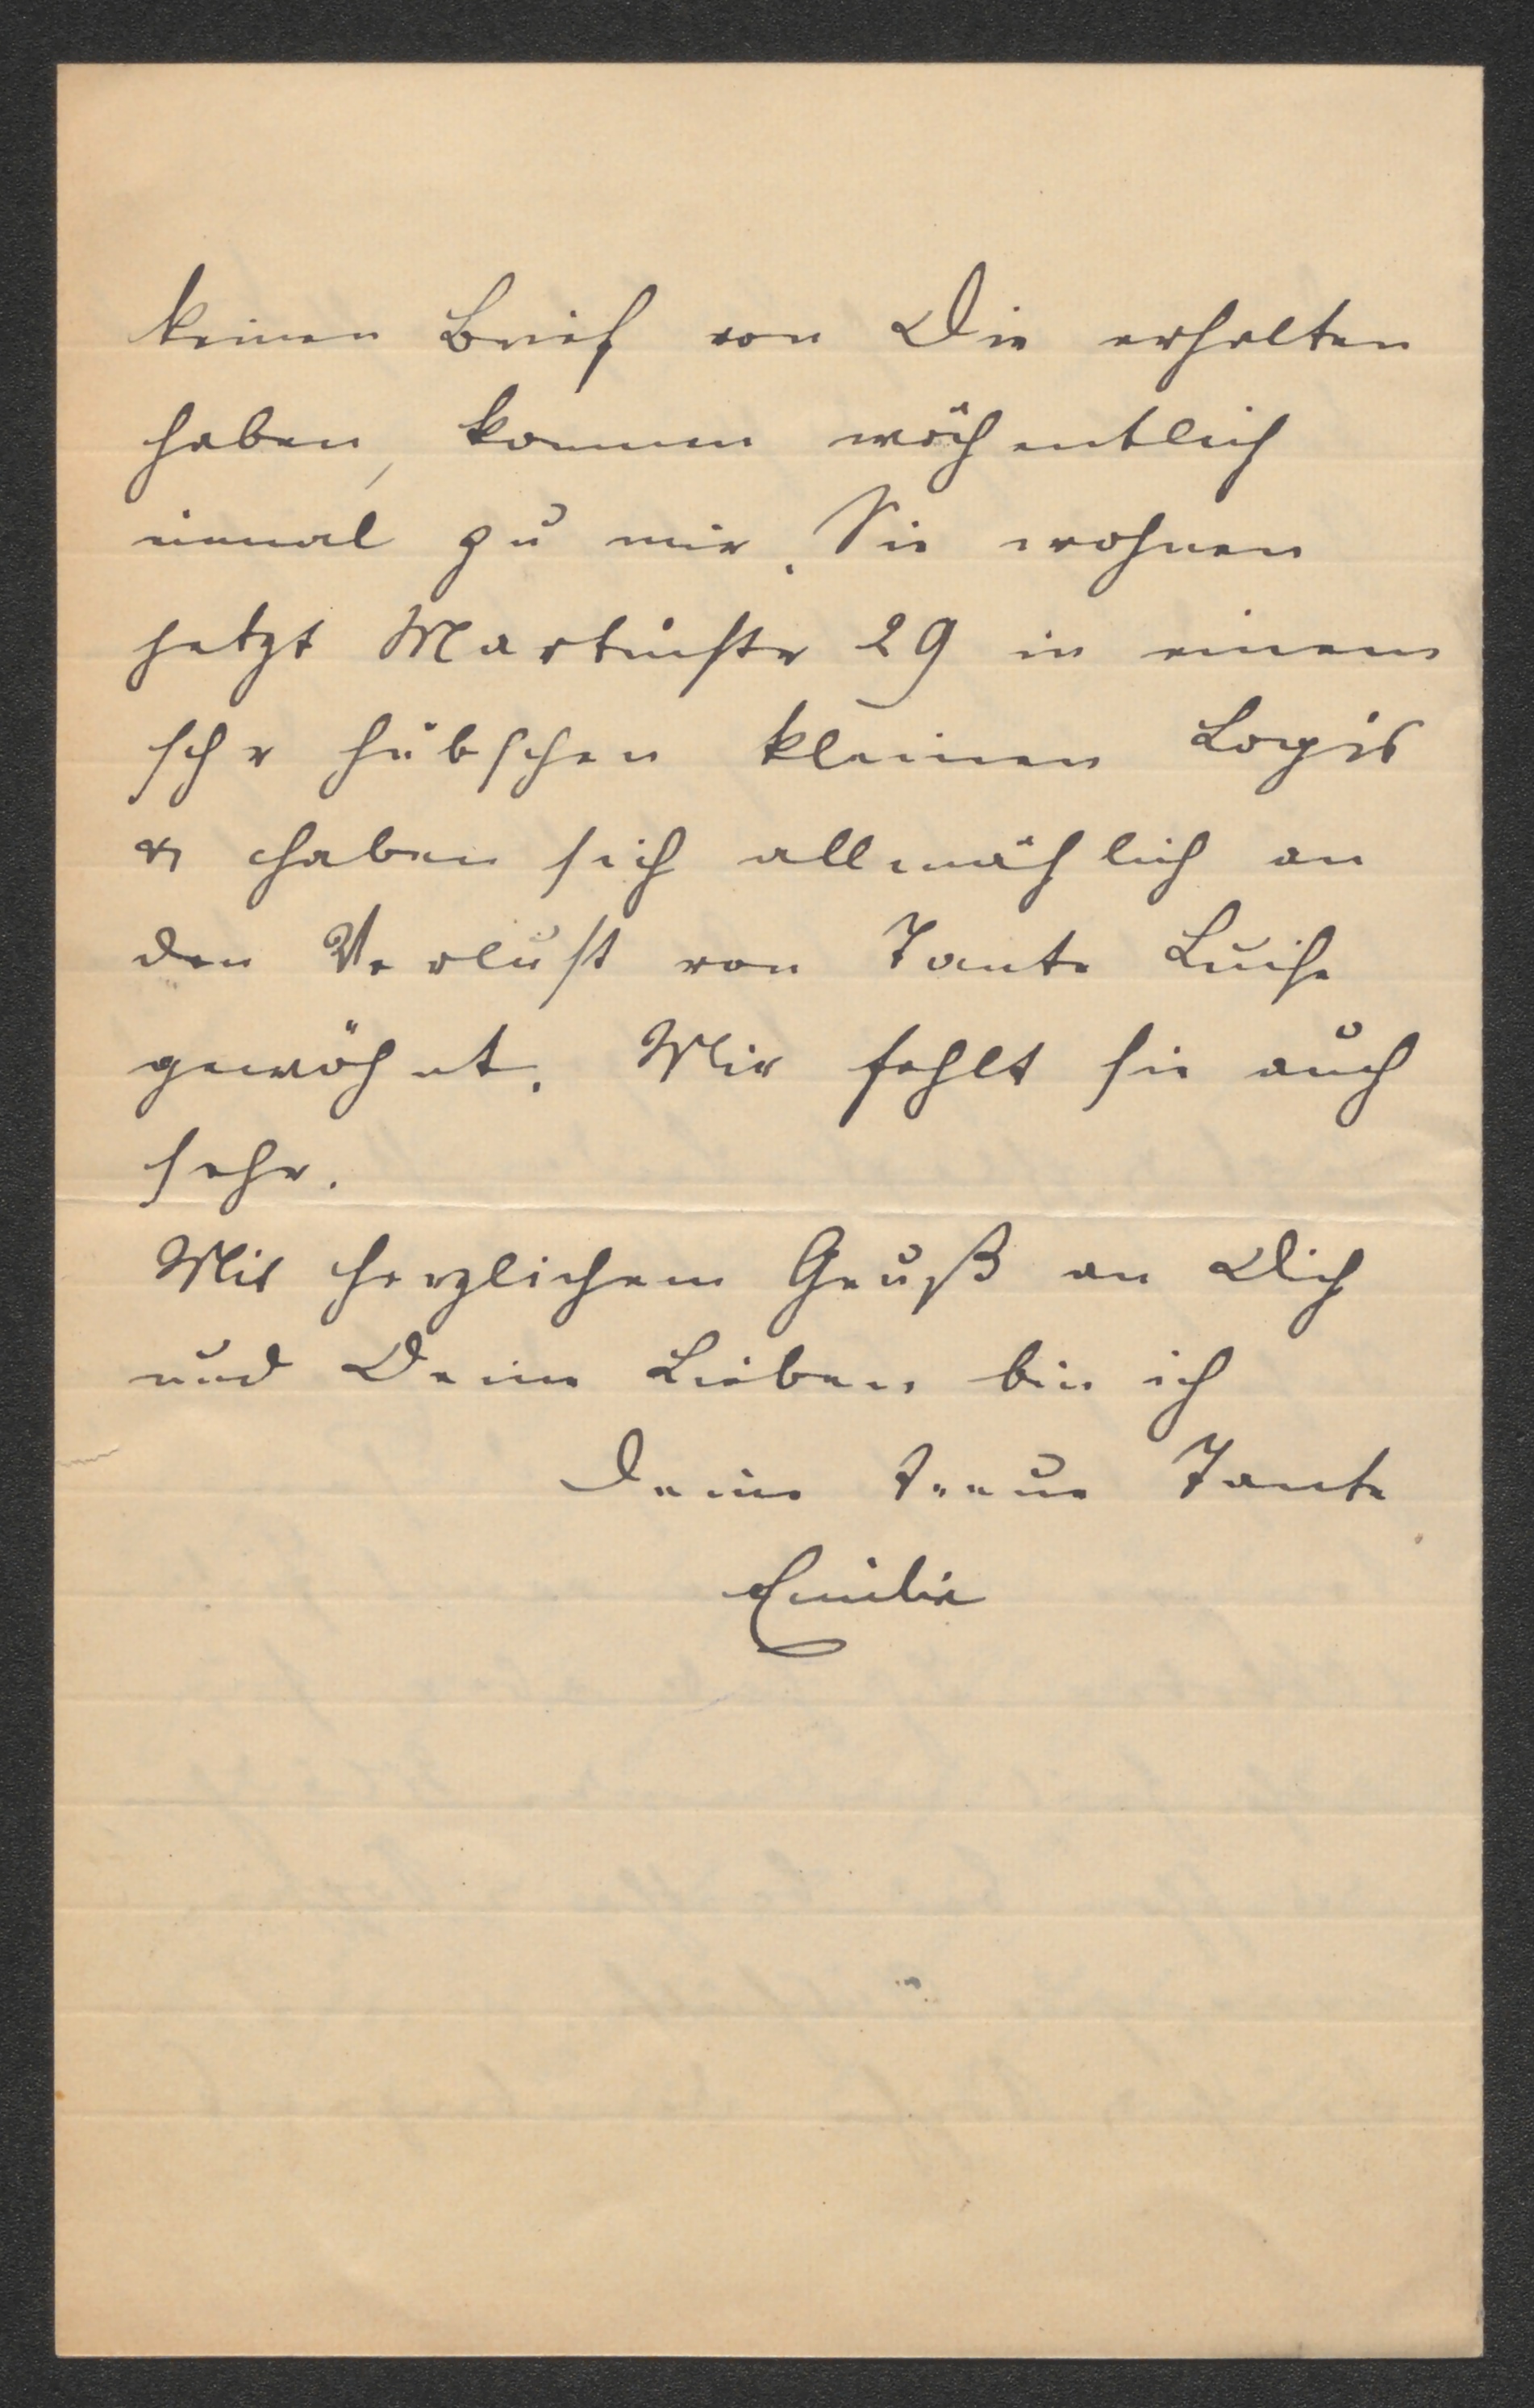 keinen Brief von Dir erhalten
haben, kommen wöchentlich
einmal zu mir. Sie wohnen
jetzt Martinstr 29 in einem
sehr hübschen kleinen Logis
& haben sich allmählich an
den Verlust von Tante Luise
gewöhnt. Mir fehlt sie auch
sehr.
Mit herzlichem Gruß an Dich
und Deine Lieben bin ich
Deine treue Tante
Emilie